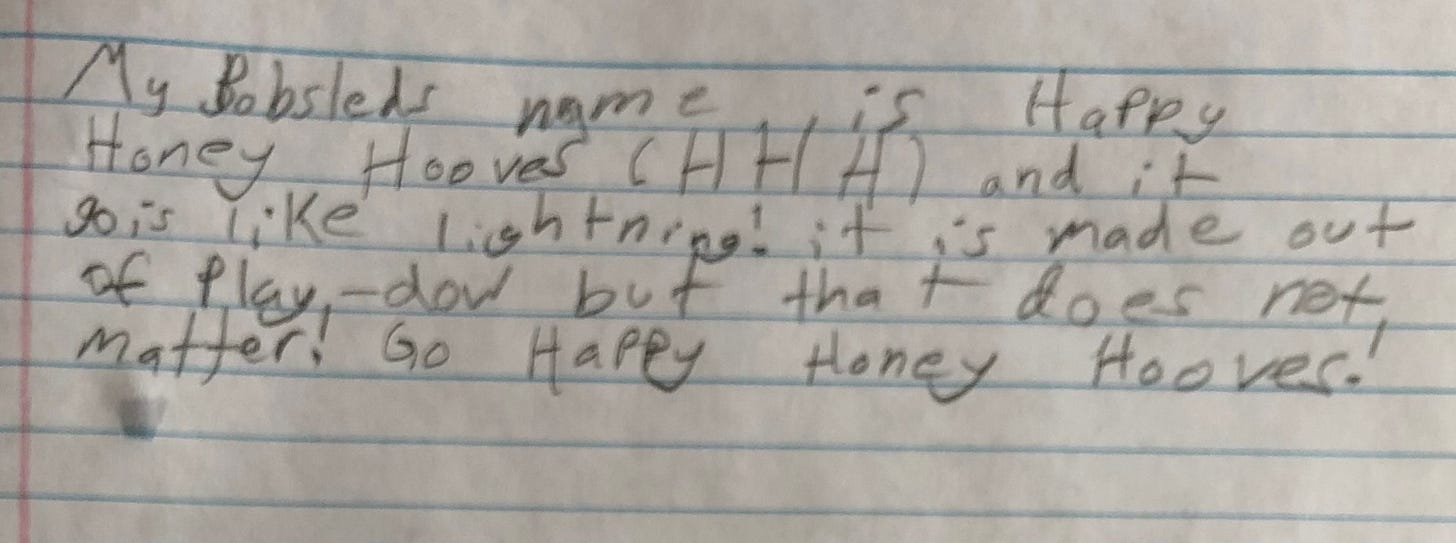 My Bobsleds name is Happy
Honey Hooves (HHH) and it
gois like lightning! it is made out
of Play-dow but that does not
matter! Go Happy Honey Hooves!